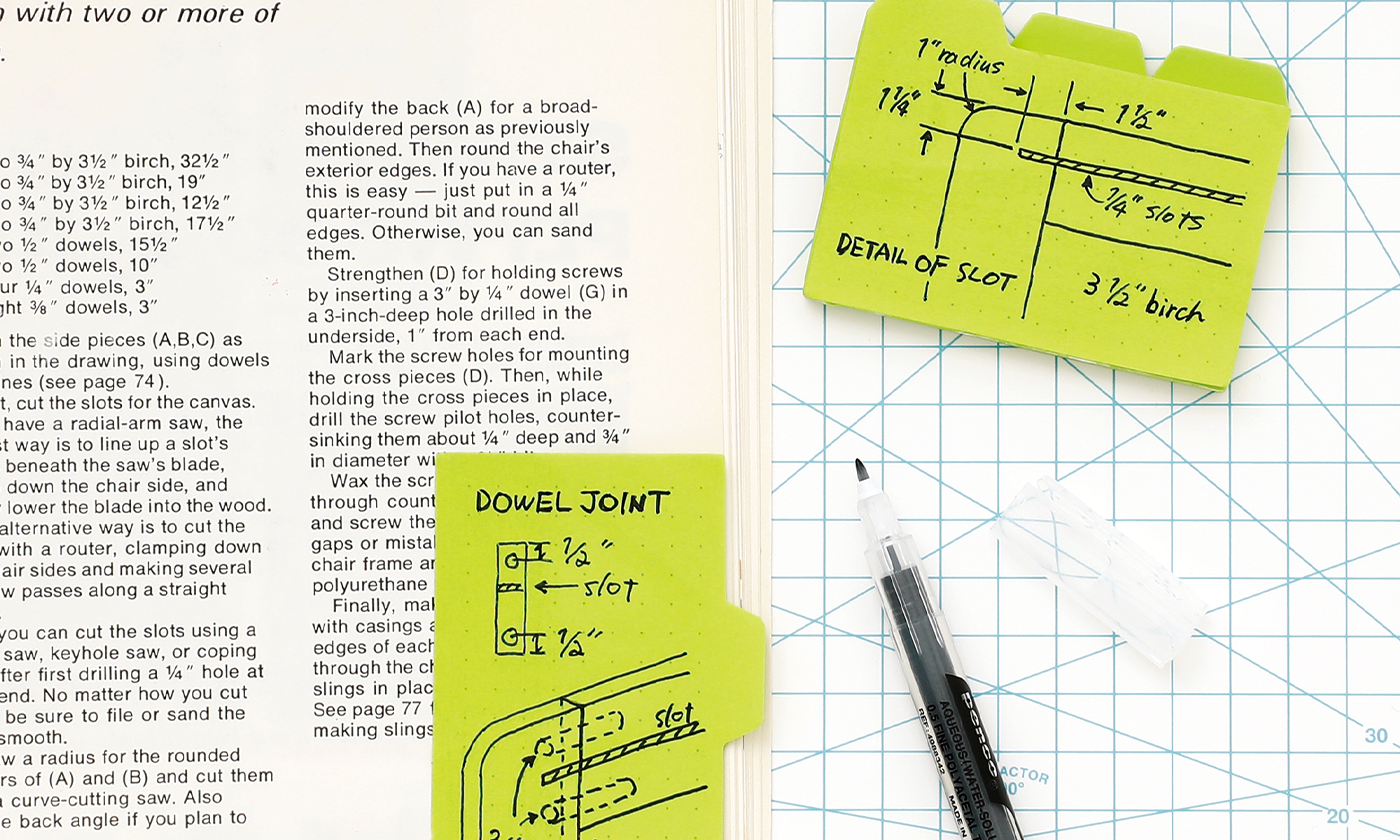 with two or more of
.
¾" by 3½" birch, 32½"
¾" by 3½" birch, 19"
¾" by 3½" birch, 12½"
¾" by 3½" birch, 17½"
½" dowels, 15½"
½" dowels, 10"
¼" dowels, 3"
⅜" dowels, 3"
the side pieces (A,B,C) as
in the drawing, using dowels
(see page 74).
cut the slots for the canvas.
have a radial-arm saw, the
way is to line up a slot's
beneath the saw's blade,
down the chair side, and
lower the blade into the wood.
alternative way is to cut the
with a router, clamping down
sides and making several
passes along a straight
you can cut the slots using a
saw, keyhole saw, or coping
first drilling a ¼" hole at
end. No matter how you cut
be sure to file or sand the
smooth.
a radius for the rounded
of (A) and (B) and cut them
curve-cutting saw. Also
back angle if you plan to
modify the back (A) for a broad-
shouldered person as previously
mentioned. Then round the chair's
exterior edges. If you have a router,
this is easy — just put in a ¼"
quarter-round bit and round all
edges. Otherwise, you can sand
them.
Strengthen (D) for holding screws
by inserting a 3" by ¼" dowel (G) in
a 3-inch-deep hole drilled in the
underside, 1" from each end.
Mark the screw holes for mounting
the cross pieces (D). Then, while
holding the cross pieces in place,
drill the screw pilot holes, counter-
sinking them about ¼" deep and ¾"
in diameter
Wax the
through
and screw the
gaps or
chair frame
polyurethane
Finally,
with casings
edges of each
through the
slings in
See page 77
making slings
DOWEL JOINT
½"
slot
½"
slot
1" radius
1¼"
1½"
¼" slots
DETAIL OF SLOT
3 ½" birch
penco
AQUEOUS/WATER-SOL
0.5 FINE POLYACETAL
MADE IN
30
20